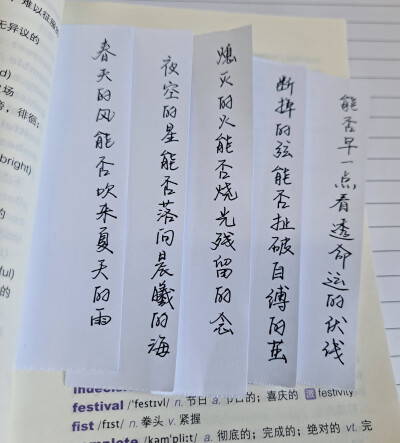 春天的风能否吹来夏天的雨
夜空的星能否落向晨曦的海
熄灭的火能否烧光残留的念
断掉的弦能否扯破自缚的茧
能否早一点看透命运的伏线
，难以征服的
无异议的
场
徘徊；
bright)
的
ful)
的
festival /'festɪvl/ n. 节日 a. 节日的；喜庆的 festivity
fist /fɪst/ n. 拳头 v. 紧握
/kəm'pliːt/ a. 彻底的；完成的；绝对的 vt. 完